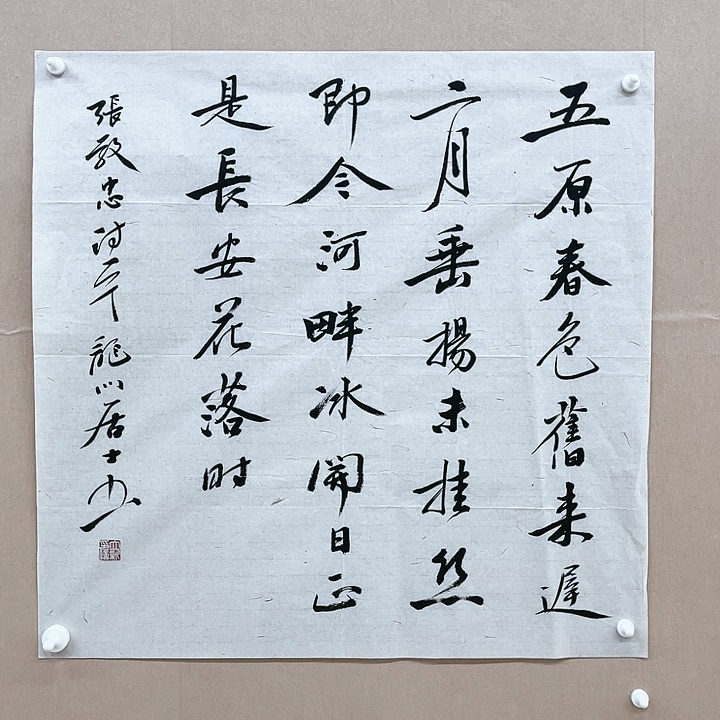 五原春色舊来遲
二月垂揚未挂丝
即今河畔冰開日正
是長安花落時
張敬忠诗一首 龍川居士